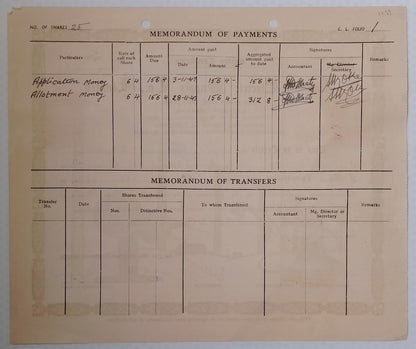 NO. OF SHARES 25 C. L. FOLIO 1
MEMORANDUM OF PAYMENTS
Particulars Rate of call each Share Amount Due Amount paid Aggregated amount paid to date Signatures Remarks
Date Amount Accountant Secretary
Application Money 6 4 156 4 3-11-47 156 4 - 156 4 -
Allotment Money 6 4 156 4 28-11-47 156 4 - 312 8 -
MEMORANDUM OF TRANSFERS
Transfer No. Date Shares Transferred To whom Transferred Signatures Remarks
Nos. Distinctive Nos. Accountant Mg. Director or Secretary